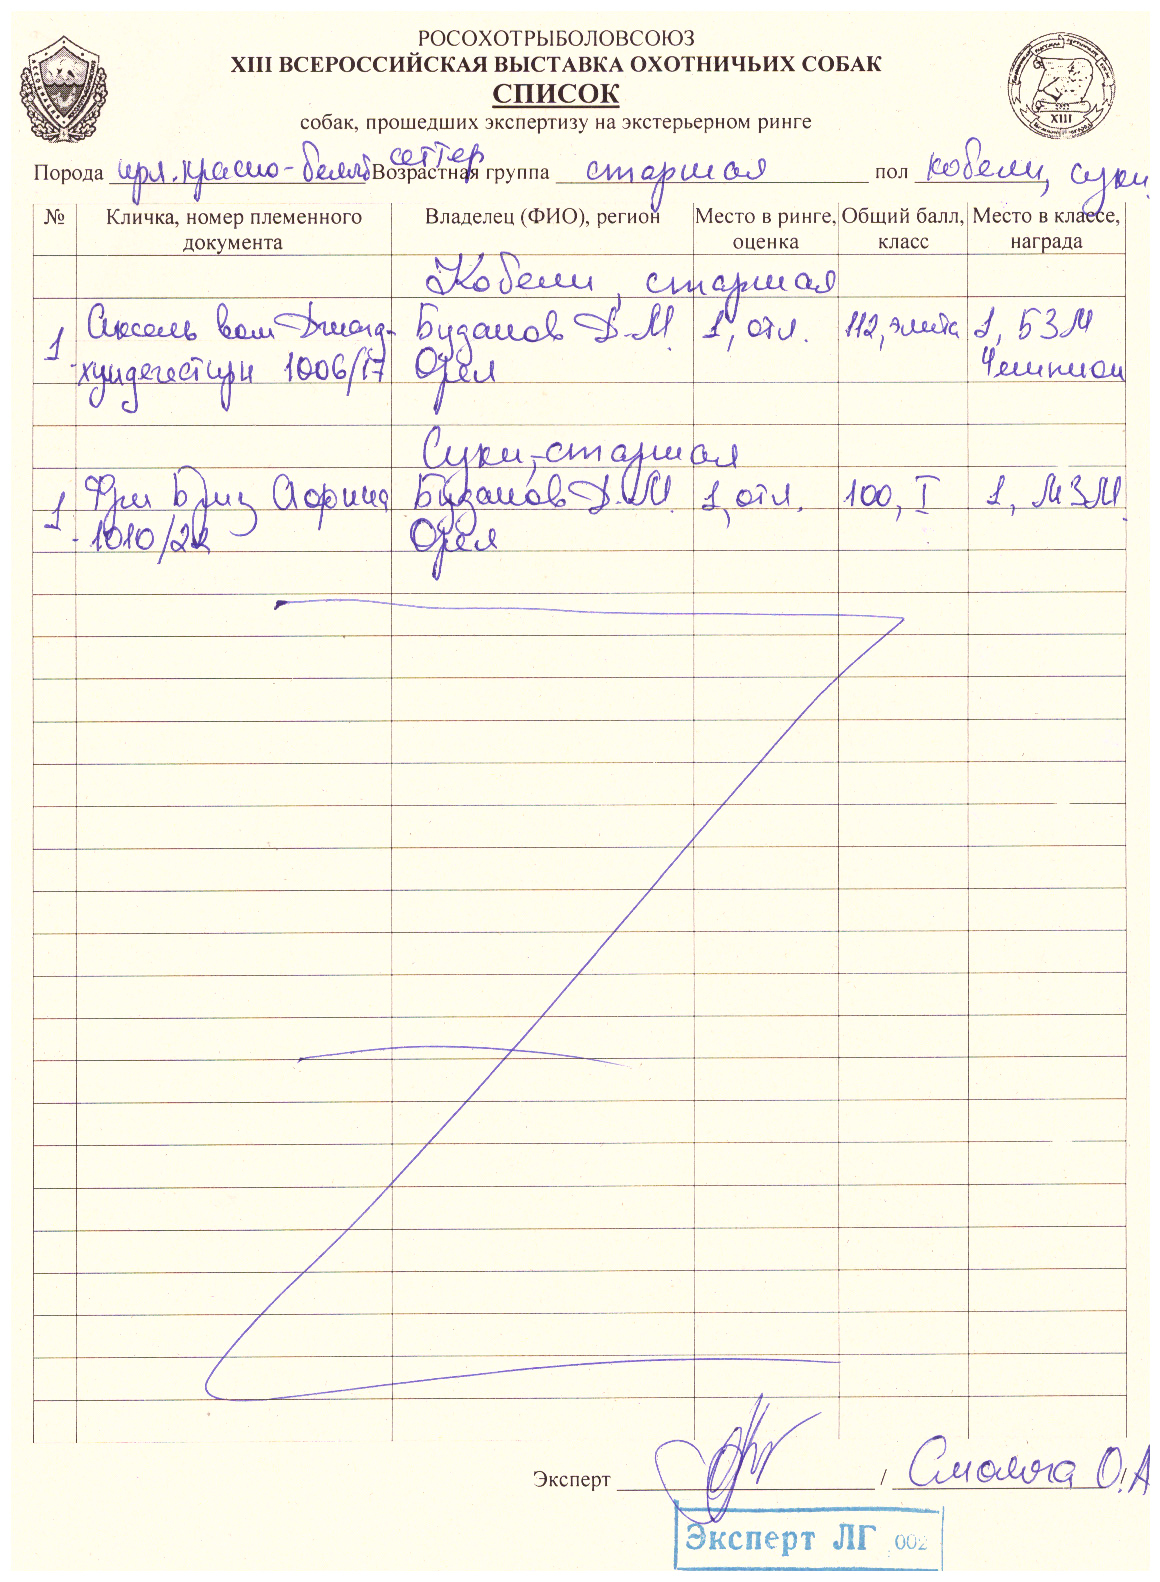 РОСОХОТРЫБОЛОВСОЮЗ
XIII ВСЕРОССИЙСКАЯ ВЫСТАВКА ОХОТНИЧЬИХ СОБАК
СПИСОК
собак, прошедших экспертизу на экстерьерном ринге
XIII
Порода ирл. красно-белый сеттер Возрастная группа старшая пол кобели, суки
№ Кличка, номер племенного документа Владелец (ФИО), регион Место в ринге, оценка Общий балл, класс Место в классе, награда
Кобели, старшая
1 Аксель вом Буданов Д.М. 1, отл. 112, элита 1, БЗМ
1006/17 Орел Чемпион
Суки, старшая
1 Фри Бриз Буданов Д.М. 1, отл. 100, I 1, МЗМ
1010/22 Орел
Эксперт / О.А /
Эксперт ЛГ 002